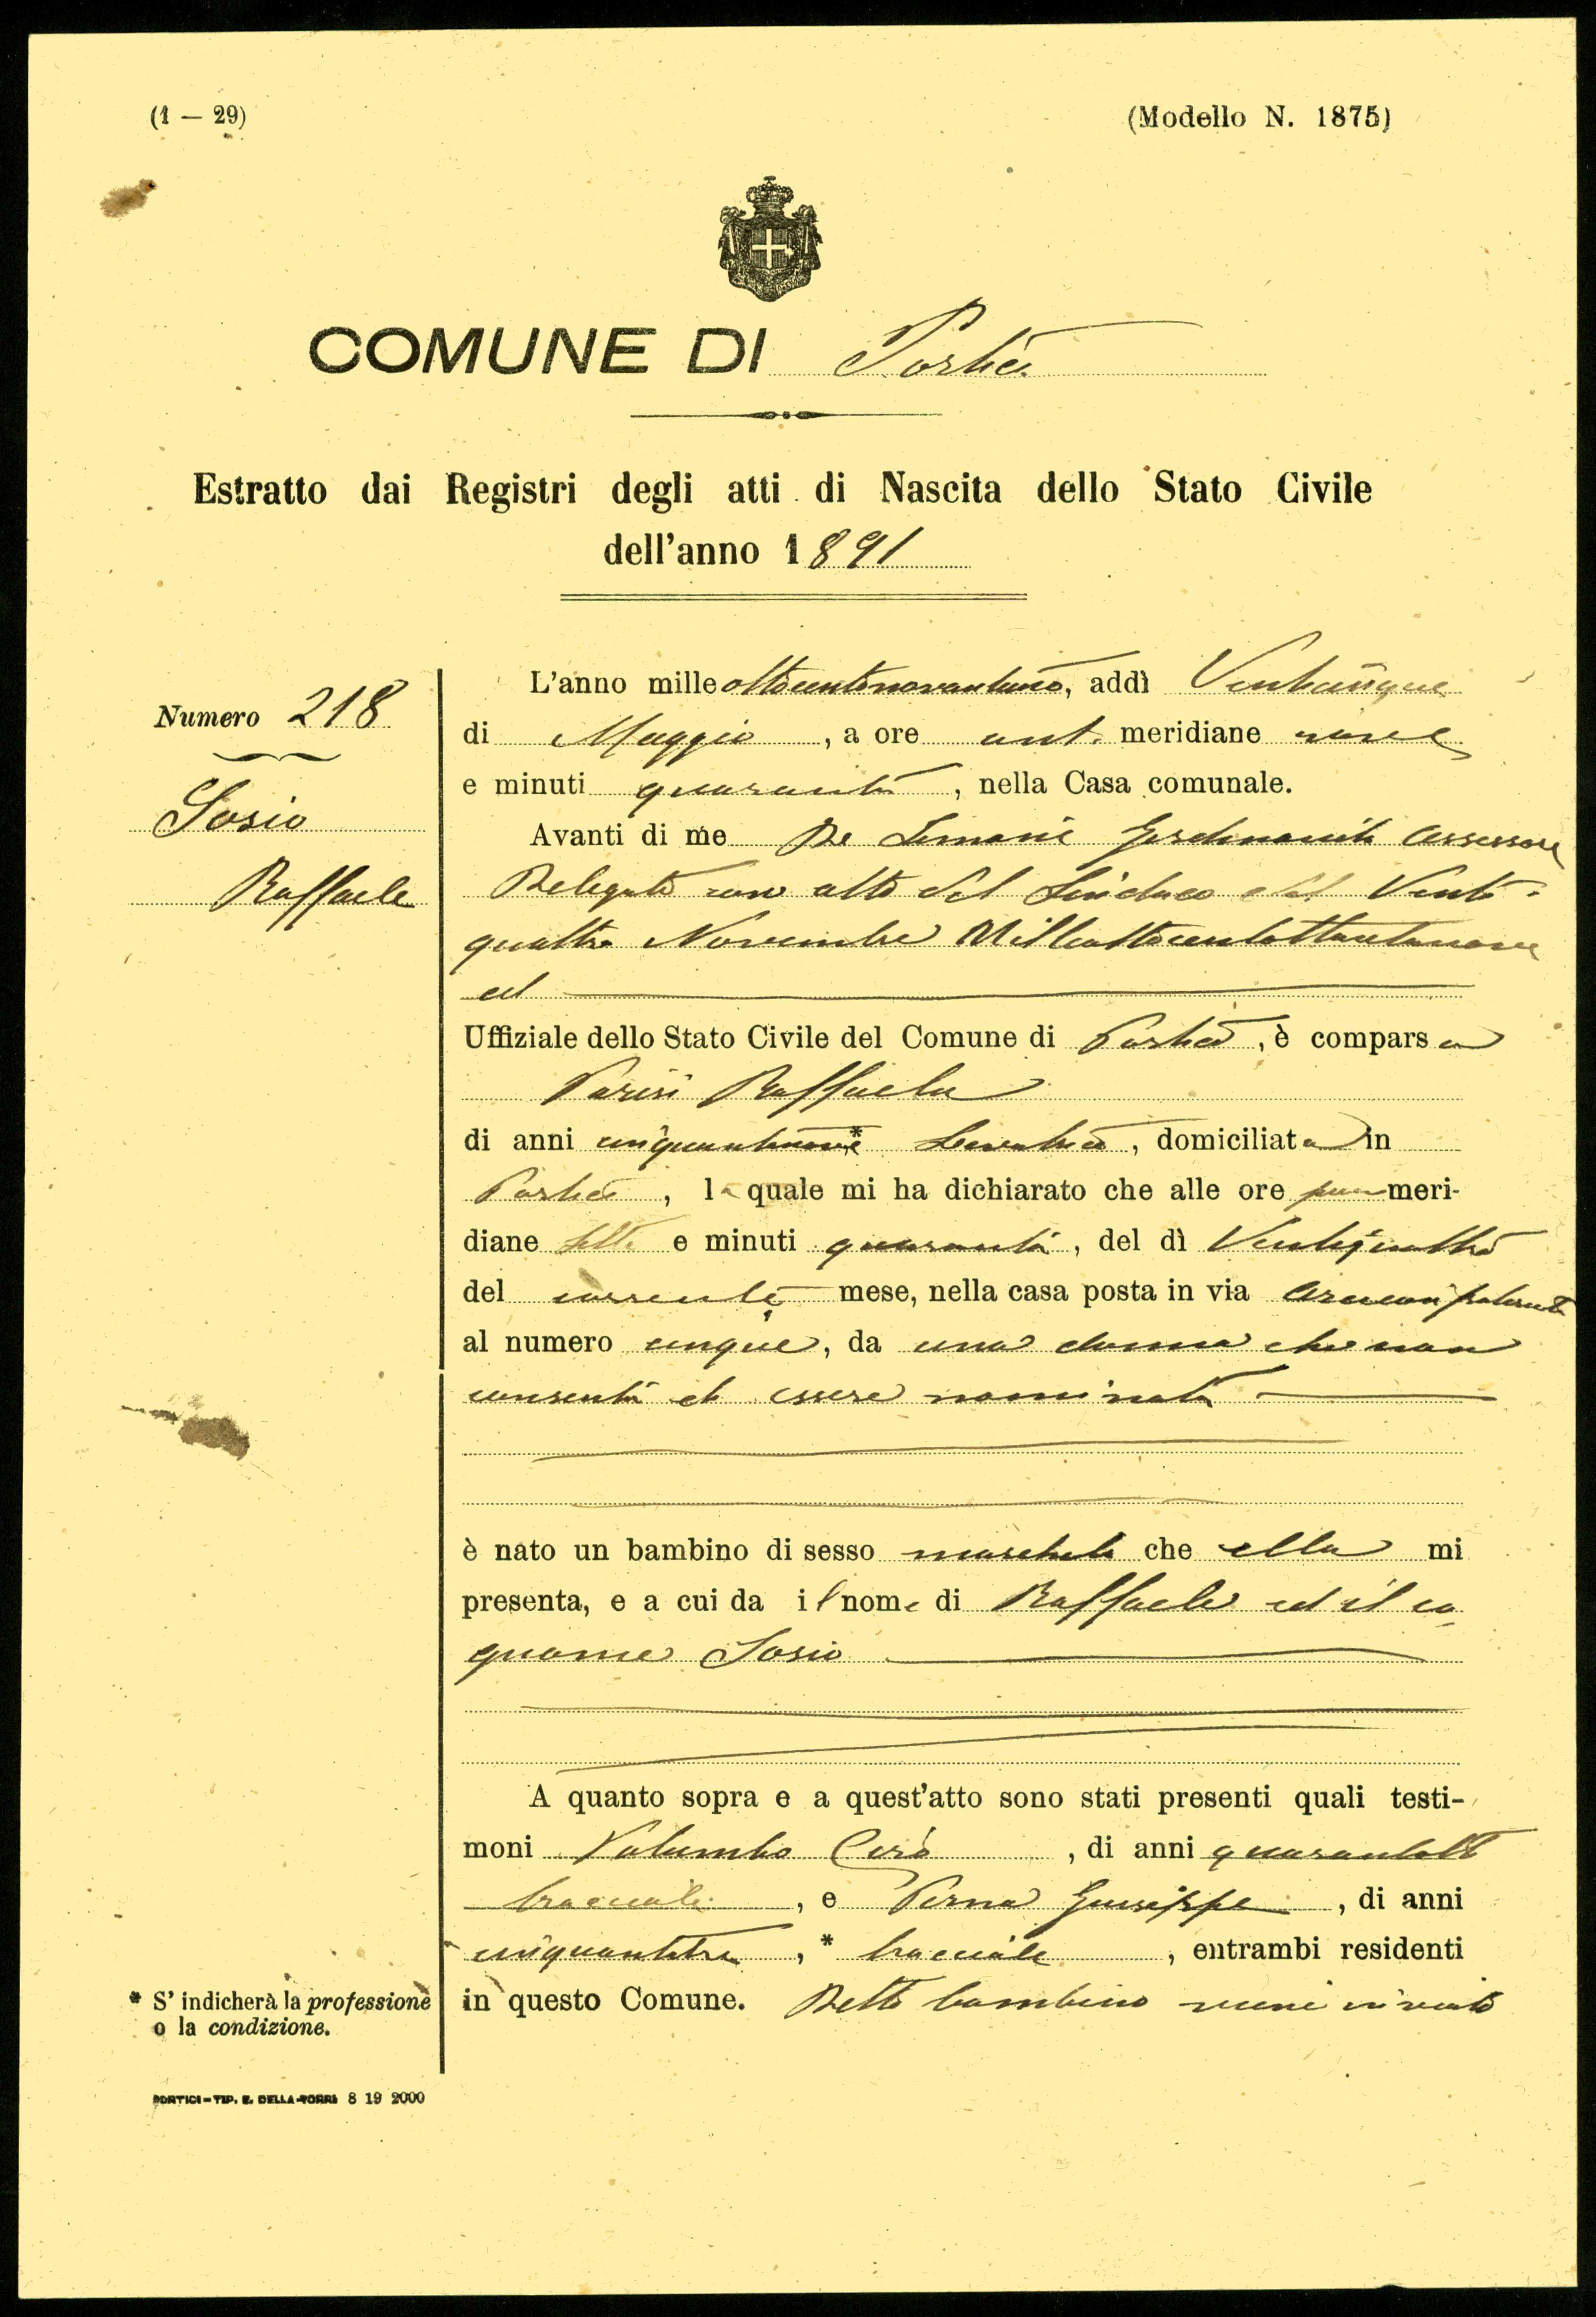 (1 — 29)
(Modello N. 1875)
COMUNE DI Portici
Estratto dai Registri degli atti di Nascita dello Stato Civile
dell'anno 1891
Numero 218
Sosio
Raffaele
L'anno milleottocentonovantuno, addì Venticinque
di Maggio, a ore ant. meridiane nove
e minuti quaranta, nella Casa comunale.
Avanti di me De Simone Ferdinando Assessore
Delegato con atto del Sindaco del Venti-
quattro Novembre Milleottocentottantanove
ed
Uffiziale dello Stato Civile del Comune di Portici, è comparsa
Parisi Raffaela
di anni cinquantanove* Levatrice, domiciliata in
Portici, la quale mi ha dichiarato che alle ore pom meri-
diane sette e minuti quaranta, del dì Ventiquattro
del corrente mese, nella casa posta in via
al numero cinque, da una donna che non
consente di essere nominata
è nato un bambino di sesso maschile che ella mi
presenta, e a cui da il nome di Raffaele ed il co
gnome Sosio
A quanto sopra e a quest'atto sono stati presenti quali testi-
moni Palumbo Ciro, di anni quarantotto
bracciale, e Perna Giuseppe, di anni
cinquantatre, * bracciale, entrambi residenti
in questo Comune. Detto bambino
* S' indicherà la professione
o la condizione.
PORTICI - TIP. E. DELLA-TORRE 8 19 2000